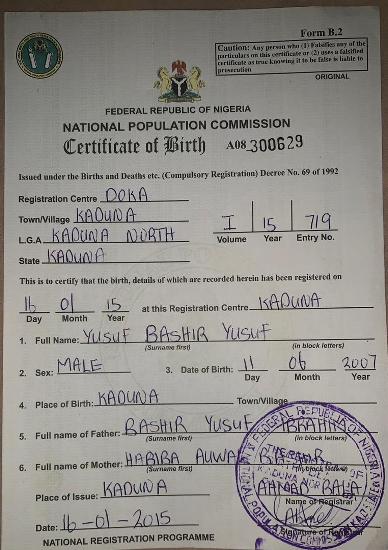 Form B.2
Caution: Any person who (1) Falsifies any of the
particulars on this certificate or (2) uses a falsified
certificate as true knowing it to be false is liable to
prosecution
ORIGINAL
FEDERAL REPUBLIC OF NIGERIA
NATIONAL POPULATION COMMISSION
Certificate of Birth A08 300629
Issued under the Births and Deaths etc. (Compulsory Registration) Decree No. 69 of 1992
Registration Centre DOKA
Town/Village KADUNA
L.G.A KADUNA NORTH
State KADUNA
I 15 719
Volume Year Entry No.
This is to certify that the birth, details of which are recorded herein has been registered on
16 01 15 at this Registration Centre KADUNA
Day Month Year
1. Full Name: YUSUF BASHIR YUSUF
(Surname first) (in block letters)
2. Sex: MALE 3. Date of Birth: 11 06 2007
Day Month Year
4. Place of Birth: KADUNA Town/Village
5. Full name of Father: BASHIR YUSUF IBRAHIM
(Surname first) (in block letters)
6. Full name of Mother: HABIBA AUWAL
(Surname first) (in block letters)
Place of Issue: KADUNA
Name of Registrar
Date: 16-01-2015
Signature of Registrar
NATIONAL REGISTRATION PROGRAMME